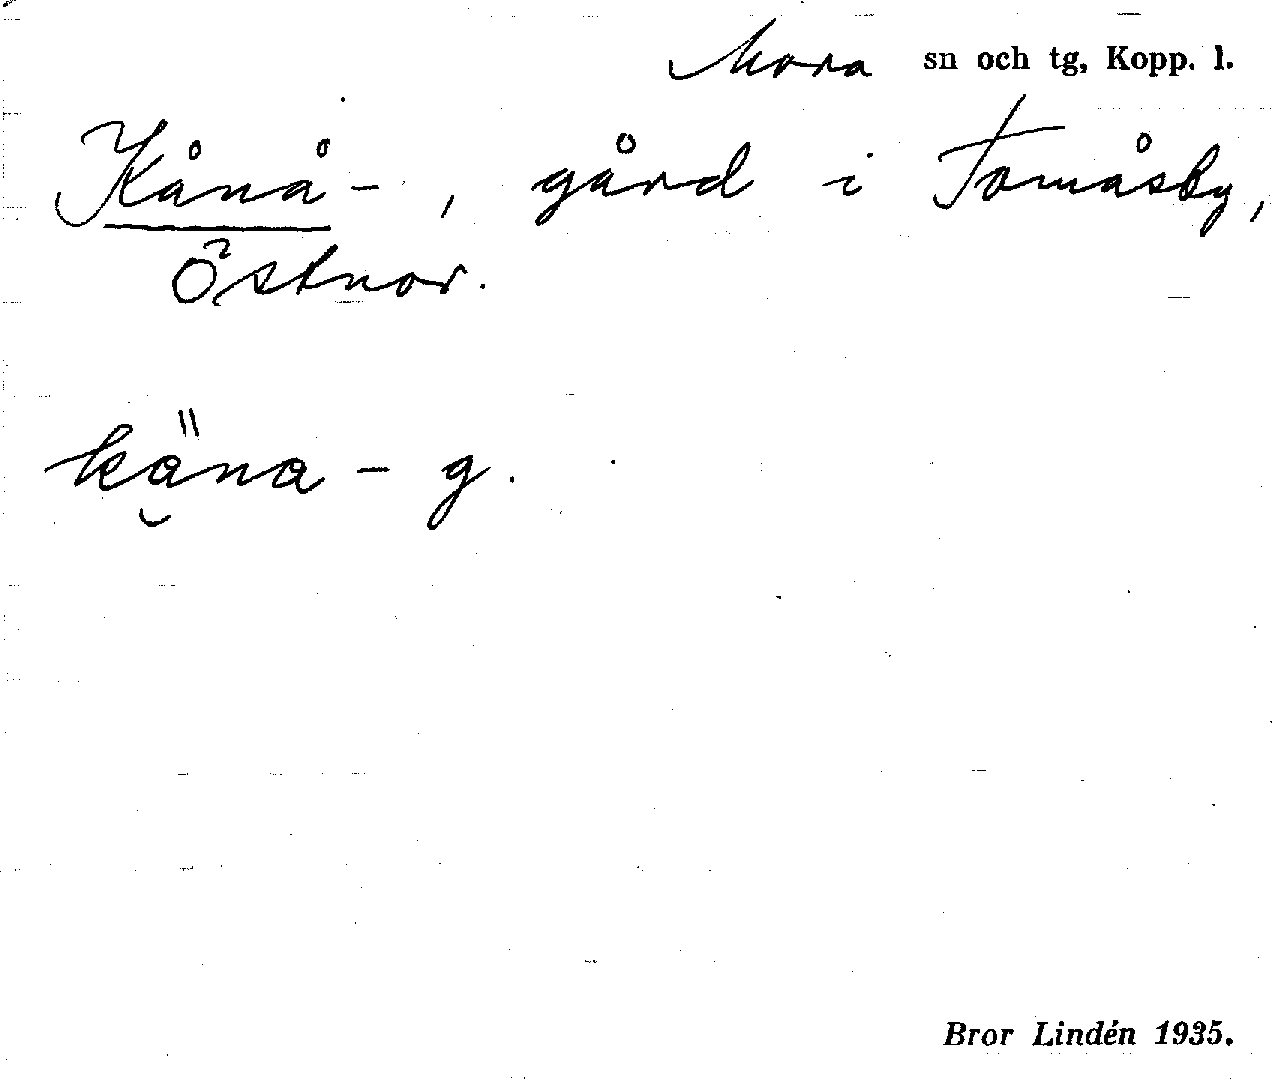 Mora sn och tg, Kopp. l.
Kånå-, gård i Tomåsby,
Östnor.
kä̮na - g.
Bror Lindén 1935.